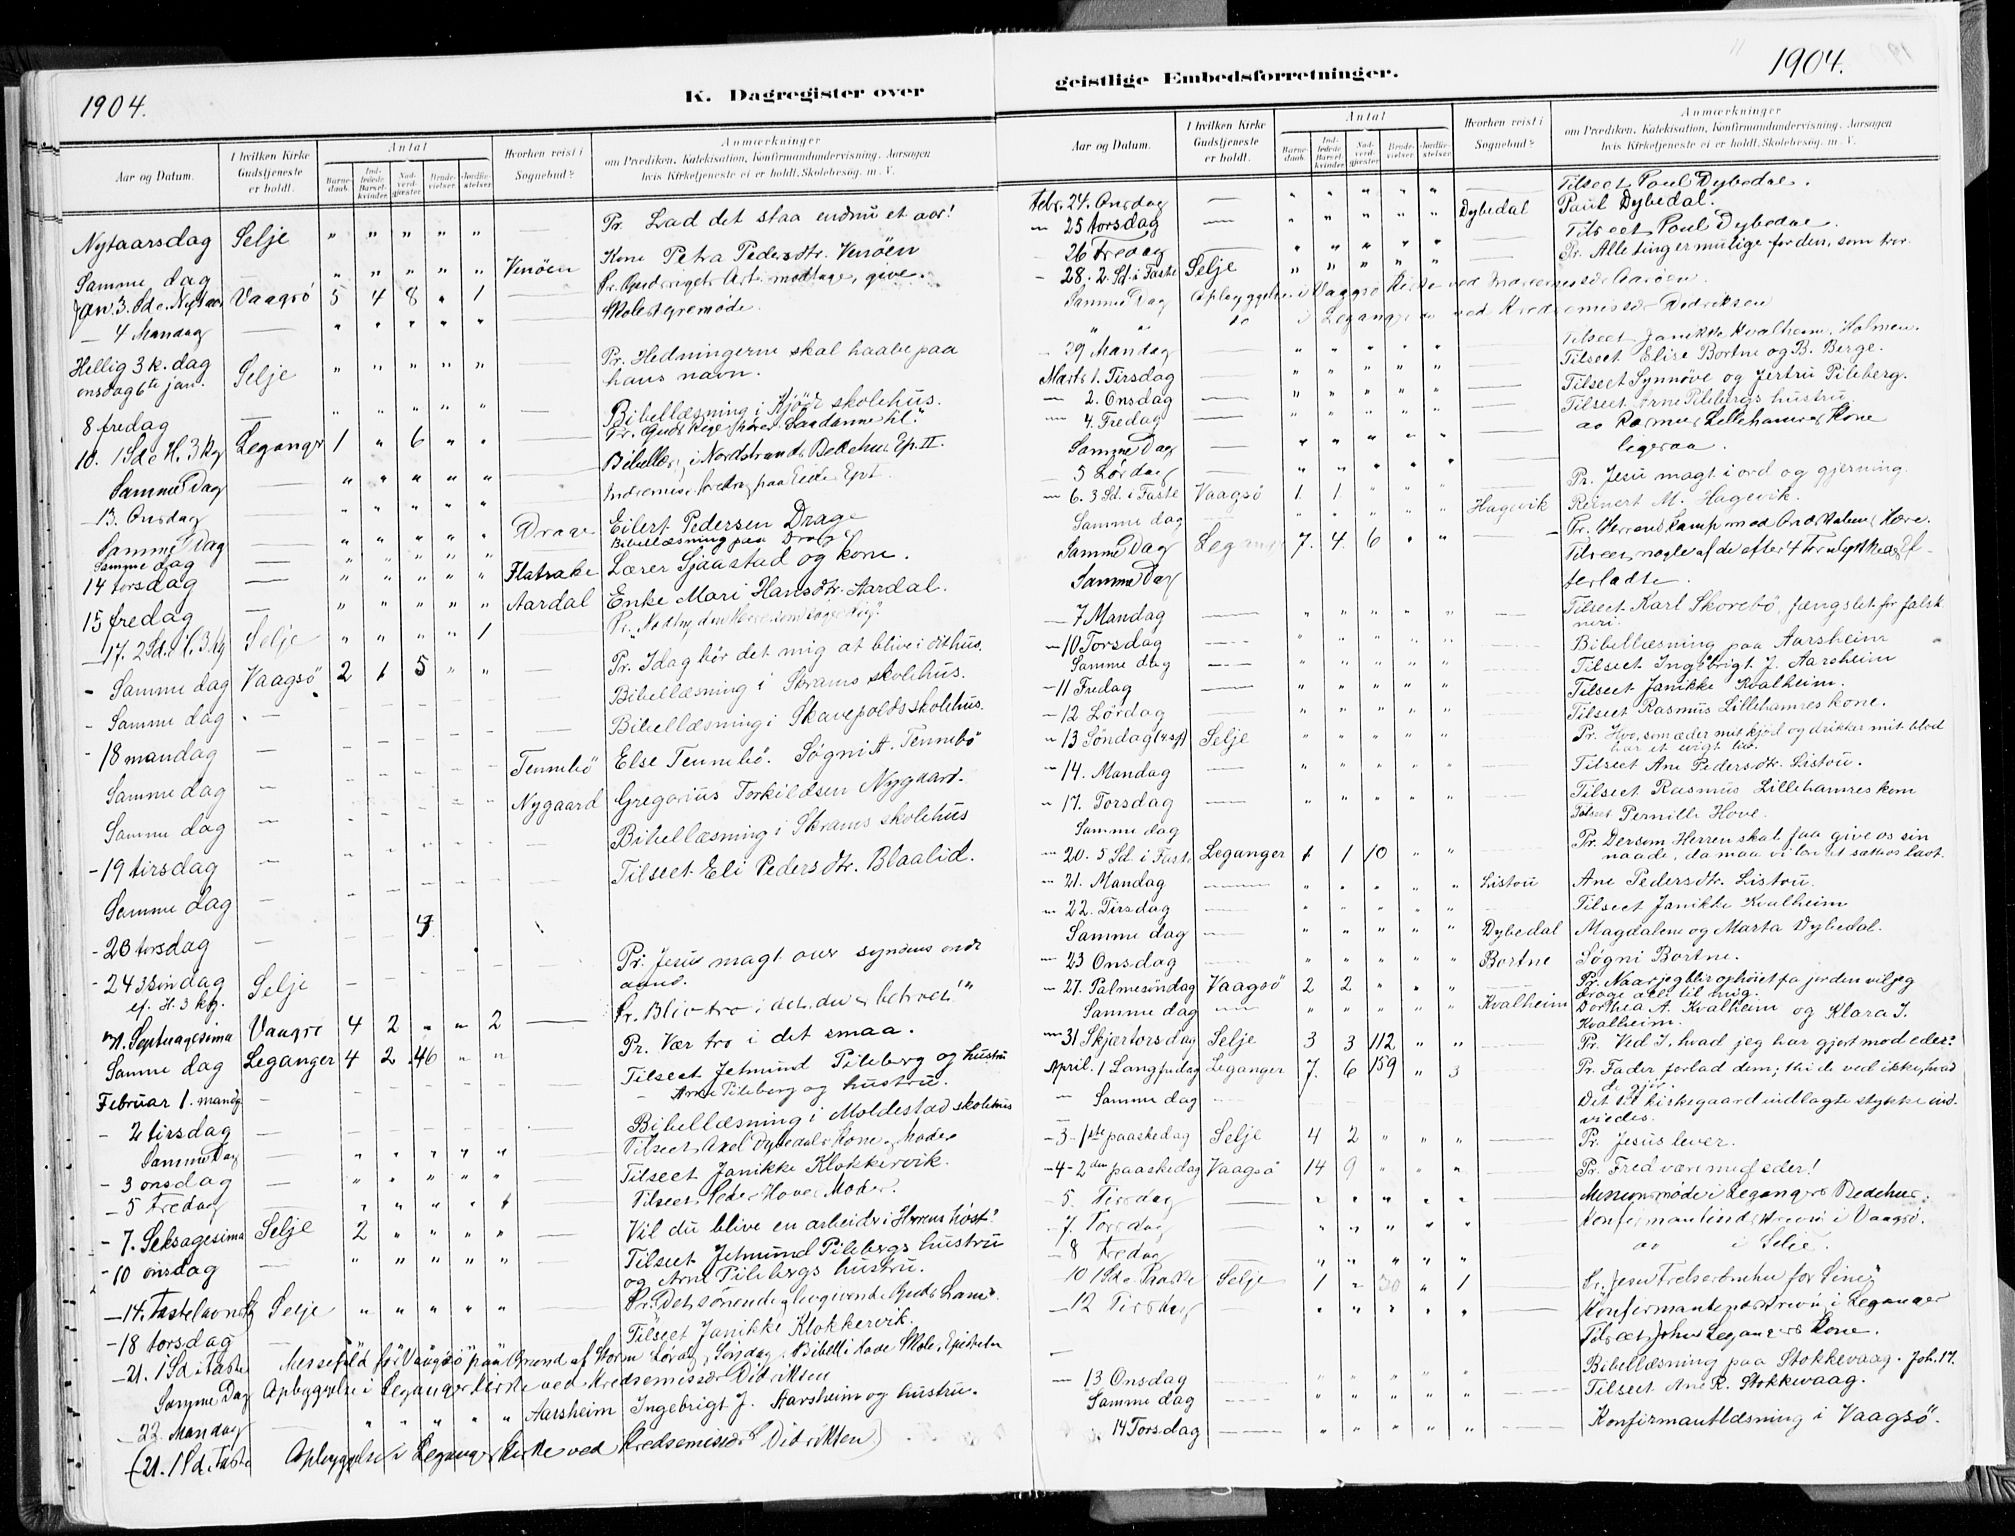 1904.
K. Dagregister over
Aar og Datum. I hvilken Kirke Gudstjeneste er holdt. Antal Barnedaab. Indledede Barselkvinder Nadverdgjæster Brudevielser Jordfæstelser Hvorhen reist i Sognebud? Anmærkninger om Prædiken, Katekisation, Konfirmandundervisning. Aarsagen hvis Kirketjeneste ei er holdt. Skolebesøg. m. V.
Nytaarsdag Selje " " " " " — Pr. Lad det staa endnu et aar!
Samme dag — " " " " " Venöen Kone Petra Pedersdtr. Venöen
Jan. 3. Sd. e. Nytaar Vaagsö 5 4 8 " 1 — Pr. Guds riges Art: modtage, give.
— 4 Mandag — " " " " " — Skolestyremöde.
Hellig 3 k. dag
onsdag 6te jan. Selje " " " " " — Pr. Hedningerne skal haabe paa
hans navn.
8 fredag — " " " " " — Bibellæsning i skolehus.
10. 1 Sd. e. H. 3 kg Leganger 1 " 6 " " Pr. Guds Rige hører Saadanne til."
Samme Dag — " " " " " Bibellæs. i Nordstrands Bedehus Ep. II.
— 13. Onsdag — " " " " " Indremis. foredrag paa Eide
Samme Dag — " " " " " Drage Eilert Pedersen Drage
Samme dag — Bibellæsning paa Drage
14 torsdag — " " " " " Flatrake Lærer Sjaastad og kone.
15 fredag — " " " " " Aardal Enke Mari Hansdtr. Aardal.
— 17. 2 Sd. e. H. 3 kg Selje " " " " 1 Pr.
- Samme dag Vaagsö 2 1 5 " " — Pr. Idag bör det mig at blive i dit hus.
- Samme dag — Bibellæsning i Skrams skolehus.
- 18 mandag — Bibellæsning i Skavepolds skolehus.
Samme dag — Tennebö Else Tennebö. Søgni A. Tennebö
Samme dag — Nygaard Gregorius Torkildsen Nygaard.
- 19 tirsdag — Bibellæsning i Skrams skolehus
Samme dag — Tilseet Eli Pedersdtr. Blaalid.
- 20 torsdag —
- 24 3 Söndag
ef. H. 3 kg. Selje — Pr. Jesu magt over syndens onde
aand.
31. Septuagesima Vaagsö 4 2 " " 2 — Pr. Bliv tro i det, du er betroet!"
Samme dag Leganger 4 2 46 " " Pr. Vær tro i det smaa.
Februar 1. mandg — Tilseet Jetmund Pileberg og hustru
- 2 tirsdag — — Arne Pileberg og hustru.
Samme Dag — Bibellæsning i Moldestad skolehus
- 3 onsdag — Tilseet Axel Dybedals Kone, Moder
- 5 Fredag — Tilseet Janikke Klokkervik.
Tilseet Peder Hoves Moder.
- 7. Seksagesima Selje 2 " " " " Vil du blive en arbeider i Herrens høst?
- 10 onsdag " " " " " Tilseet Jetmund Pilebergs hustru
og Arne Pilebergs hustru.
— 14. Fastelavnsdg Selje " " " " " Pr: Det sonende & Guds Lam".
- 18 torsdag — Tilseet Janikke Klokkervik.
- 21. 1 Sd. i Faste Messefald for Vaagsö paa Grund af Storm Lørdag, Søndag.
Samme Dag Opbyggelse i Leganger Kirke ved Kredsemissær Didriksen
— 22. Mandag " " " " " Aarsheim Ingebrigt J. Aarsheim og hustru.
(21. 1 Sd. i Faste Opbyggelse i Leganger Kirke ved Kredsemissær Didriksen)
geistlige Embedsforretninger.
1904.
Aar og Datum. I hvilken Kirke Gudstjeneste er holdt. Antal Barnedaab. Indledede Barselkvinder Nadverdgjæster Brudevielser Jordfæstelser Hvorhen reist i Sognebud? Anmærkninger om Prædiken, Katekisation, Konfirmandundervisning. Aarsagen hvis Kirketjeneste ei er holdt. Skolebesøg. m. V.
Febr. 24. Onsdag — " " " " " — Tilseet Paul Dybedal.
— 25 torsdag — " " " " " Dybedal Paul Dybedal.
26 fredag — " " " " " — Tilseet Paul Dybedal
- 28. 2. Sd. i Faste Selje " " " " " — Pr. Alle ting er mulige for den, som tror.
Samme Dag Opbyggelse i Vaagsö Kirke ved
" " do i Leganger do ved Kredsemissær Didriksen
- 29 Mandag — " " " " " — Tilseet Janikke Kvalheim, Holmen.
Marts 1. Tirsdag — " " " " " — Tilseet Elise Bortne og B. Berge.
— 2. Onsdag — " " " " " — Tilseet Synnöve og Jertru Pileberg.
— 4. Fredag — " " " " " — Tilseet Arne Pilebergs hustru
Samme Dag — " " " " " — do Rasmus Lillehamres Kone
— 5 Lørdag — ligesaa.
— 6. 3 Sd. i Faste Vaagsö 1 1 " " " Pr. Jesu magt i ord og gjerning.
Samme dag — Hagevik Reinert M. Hagevik.
Samme Dag Leganger 7. 4. 6 " " — Pr. Herrens Kamp mod
Samme Dag Tilseet nogle af de efter
forladte.
— 7 Mandag — " " " " " — Tilseet Karl Skorebö, fængslet for falsk
neri.
— 10 Torsdag — " " " " " — Bibellæsning paa Aarsheim
Samme dag — " " " " " — Tilseet Ingebrigt J. Aarsheim
— 11 Fredag — " " " " " — Tilseet Janikke Kvalheim.
— 12 Lördag — " " " " " — Tilseet Rasmus Lillehamres kone.
— 13 Söndag (4 s f) Selje " " " " " — Pr. Hvo, som æder mit kjöd og drikker mit blod
har et evigt liv.
— 14. Mandag — " " " " " — Tilseet Ane Pedersdtr. Listou.
— 17. Torsdag — " " " " " — Tilseet Rasmus Lillehamres kone
Samme dag — Tilseet Pernille Hove.
— 20. 5 Sd. i Faste Leganger 1 1 10 " " Pr. Dersom Herren skal faa give os sin
naade, da maa vi lade os sætte os lavt.
— 21. Mandag — " " " " " Listou Ane Pedersdtr. Listou.
— 22. Tirsdag — " " " " " — Tilseet Janikke Kvalheim
Samme dag — " " " " " Dybedal Magdalene og Marta Dybedal.
— 23 Onsdag — " " " " " Bortne Søgni Bortne.
— 27. Palmesöndag Vaagsö 2 2 " " " — Pr. Naar jeg blir ophöiet fra jorden vil jeg
drage alle til mig.
Samme dag — " " " " " Kvalheim Dorthea A. Kvalheim og Klara I.
Kvalheim.
— 31 Skjærtorsdag Selje 3 3 112 " " — Pr. Ved I, hvad jeg har gjort mod eder?
April. 1 Langfredag Leganger 7. 6 159 " 3 — Pr. Fader forlad dem; thi de ved ikke, hvad
de gjör.
- Samme dag — Det til kirkegaard indlagte stykke ind-
viedes.
- 3 - 1ste paaskedag Selje 4 2 " " " — Pr. Jesus lever.
- 4 - 2den paaskedag Vaagsö 14 9 " " " — Pr. Fred være med eder!
- 5. Tirsdag — " " " " " — Missionsmöde i Leganger Bedehus.
- 7. Torsdag — " " " " " — Konfirmantindskrevn i Vaagsö.
- 8 Fredag — " " " " " — do i Selje.
- 10 1 Sd. e. Paaske Selje 1 " 30 " 1 — Pr. Jesus Frelserbuden for Sine"
- 12 Tirsdag — " " " " " — i Leganger
Tilseet Johs. Legangers Kone.
- 13 Onsdag — Bibellæsning paa Stokkevaag. Joh. 17.
Samme dag — Tilseet Ane R. Stokkevaag.
14 Torsdag — " " " " " — Konfirmantlæsning i Vaagsö.